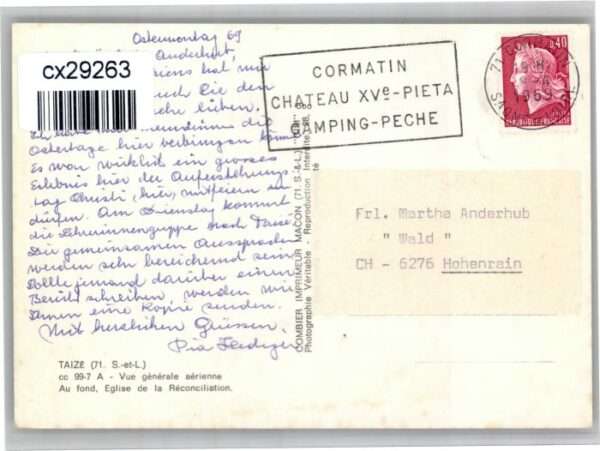 Ostermontag 69
Anderhub,
cx29263
hat, mir
Sie den
Ostertage hier verbringen
Es war wirklich ein grosses
Erlebnis hier der Auferstehungs-
tag Christi, hier, mitfeiern zu
dürfen. Am Dienstag kommt
die Schweizergruppe nach Taizé
Die gemeinsamen Aussprachen
werden sehr bereichernd sein
Sollte jemand darüber einen
Bericht schreiben, werden wir
Ihnen eine Kopie senden.
Mit herzlichen Grüssen,
Pia
TAIZE (71. S.-et-L.)
cc 99-7 A - Vue générale aérienne
Au fond, Eglise de la Réconciliation.
COMBIER IMPRIMEUR MACON (71. S.-&-L.)
Photographie Véritable - Reproduction Interdite
CORMATIN
CHATEAU XVe-PIETA
CAMPING-PECHE
0,40
71
1969
REPUBLIQUE FRANCAISE
Frl. Martha Anderhub
" Wald "
CH - 6276 Hohenrain